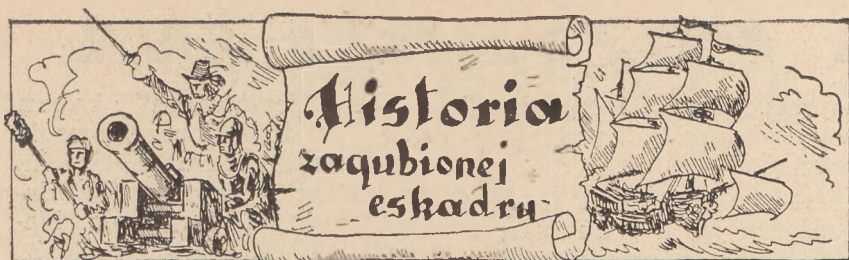 Historia
zagubionej
eskadry